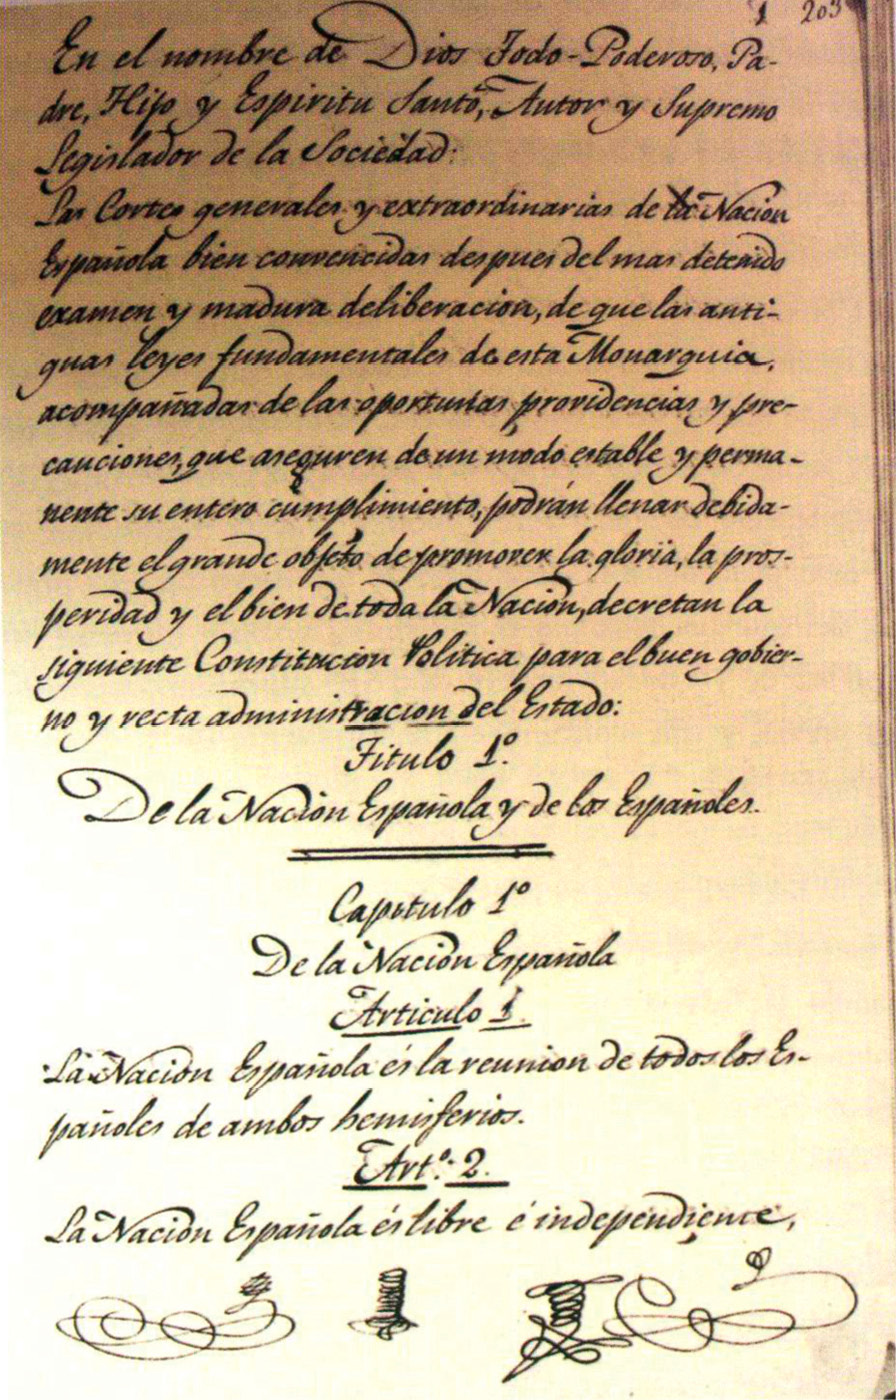 1 203
En el nombre de Dios Todo-Poderoso, Pa-
dre, Hijo y Espiritu Santo, Autor y Supremo
Legislador de la Sociedad:
Las Cortes generales y extraordinarias de la Nacion
Española bien convencidas despues del mas detenido
examen y madura deliberacion, de que las anti-
guas leyes fundamentales de esta Monarquia,
acompañadas de las oportunas providencias y pre-
cauciones, que aseguren de un modo estable y perma-
nente su entero cumplimiento, podrán llenar debida-
mente el grande objeto de promover la gloria, la pros-
peridad y el bien de toda la Nacion, decretan la
siguiente Constitucion Politica para el buen gobier-
no y recta administracion del Estado:
Titulo 1º.
De la Nacion Española y de los Españoles.
Capitulo 1º
De la Nacion Española
Articulo 1.
La Nacion Española és la reunion de todos los Es-
pañoles de ambos hemisferios.
Artº. 2.
La Nacion Española és libre é independiente,